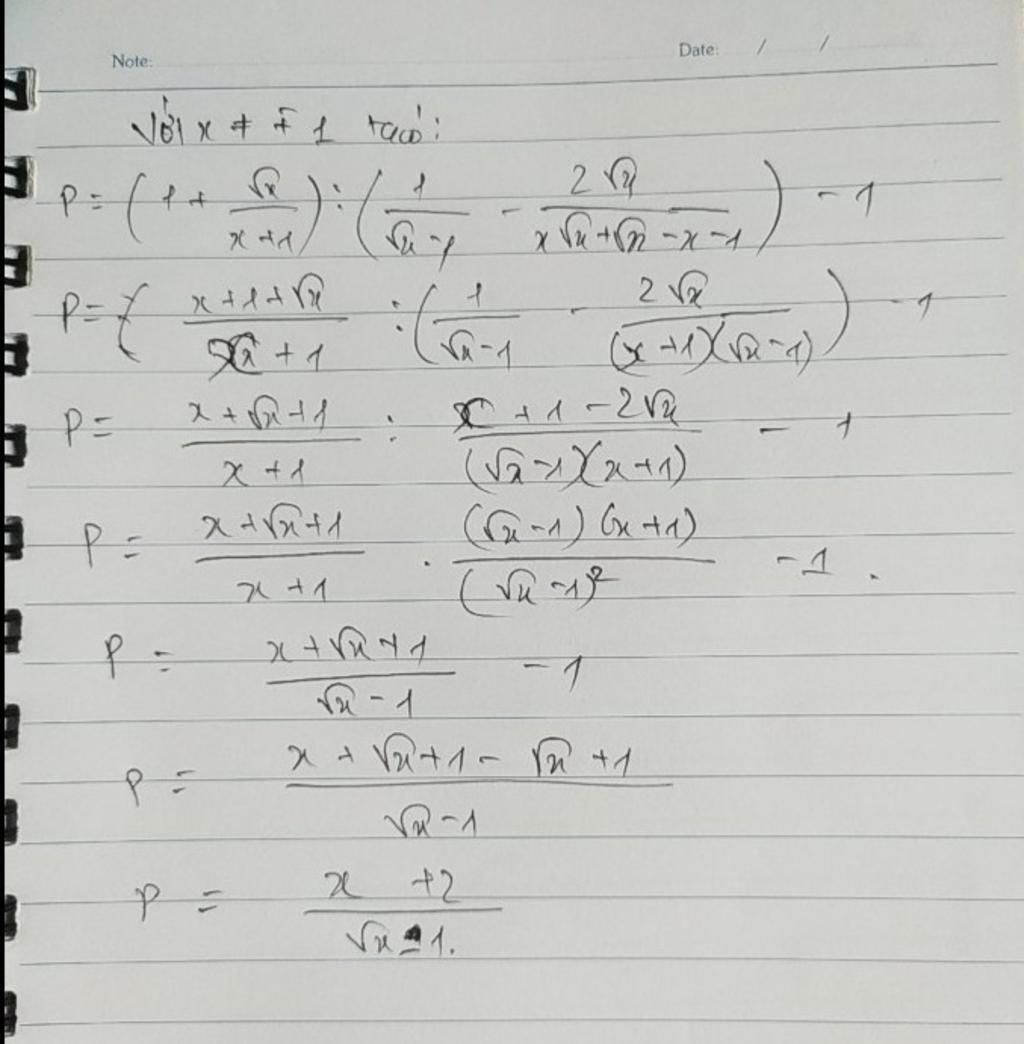 Note: Date: / /
Với x ≠ ∓ 1 ta có:
P = (1 + √x/(x+1)) : (1/(√x-1) - 2√x/(x√x+√x-x-1)) - 1
P = ( (x+1+√x)/(x+1) : (1/(√x-1) - 2√x/((x+1)(√x-1))) - 1
P = (x+√x+1)/(x+1) : (x+1-2√x)/((√x-1)(x+1)) - 1
P = (x+√x+1)/(x+1) . ((√x-1)(x+1))/(√x-1)² - 1 .
P = (x+√x+1)/(√x-1) - 1
P = (x+√x+1-√x+1)/(√x-1)
P = (x+2)/(√x-1).